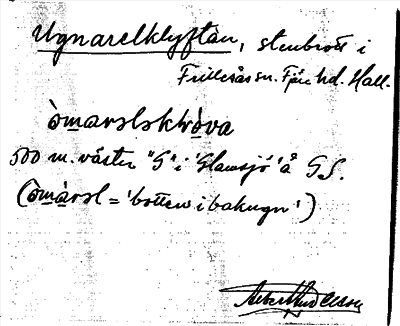 Ugnarelklyftan, stenbrott i
Frillesås sn. Fjäre hd. Hall.
òmarslskròva
500 m. väster "G" i 'Glamsjö' å GS.
(òmàrsl = 'botten i bakugn')